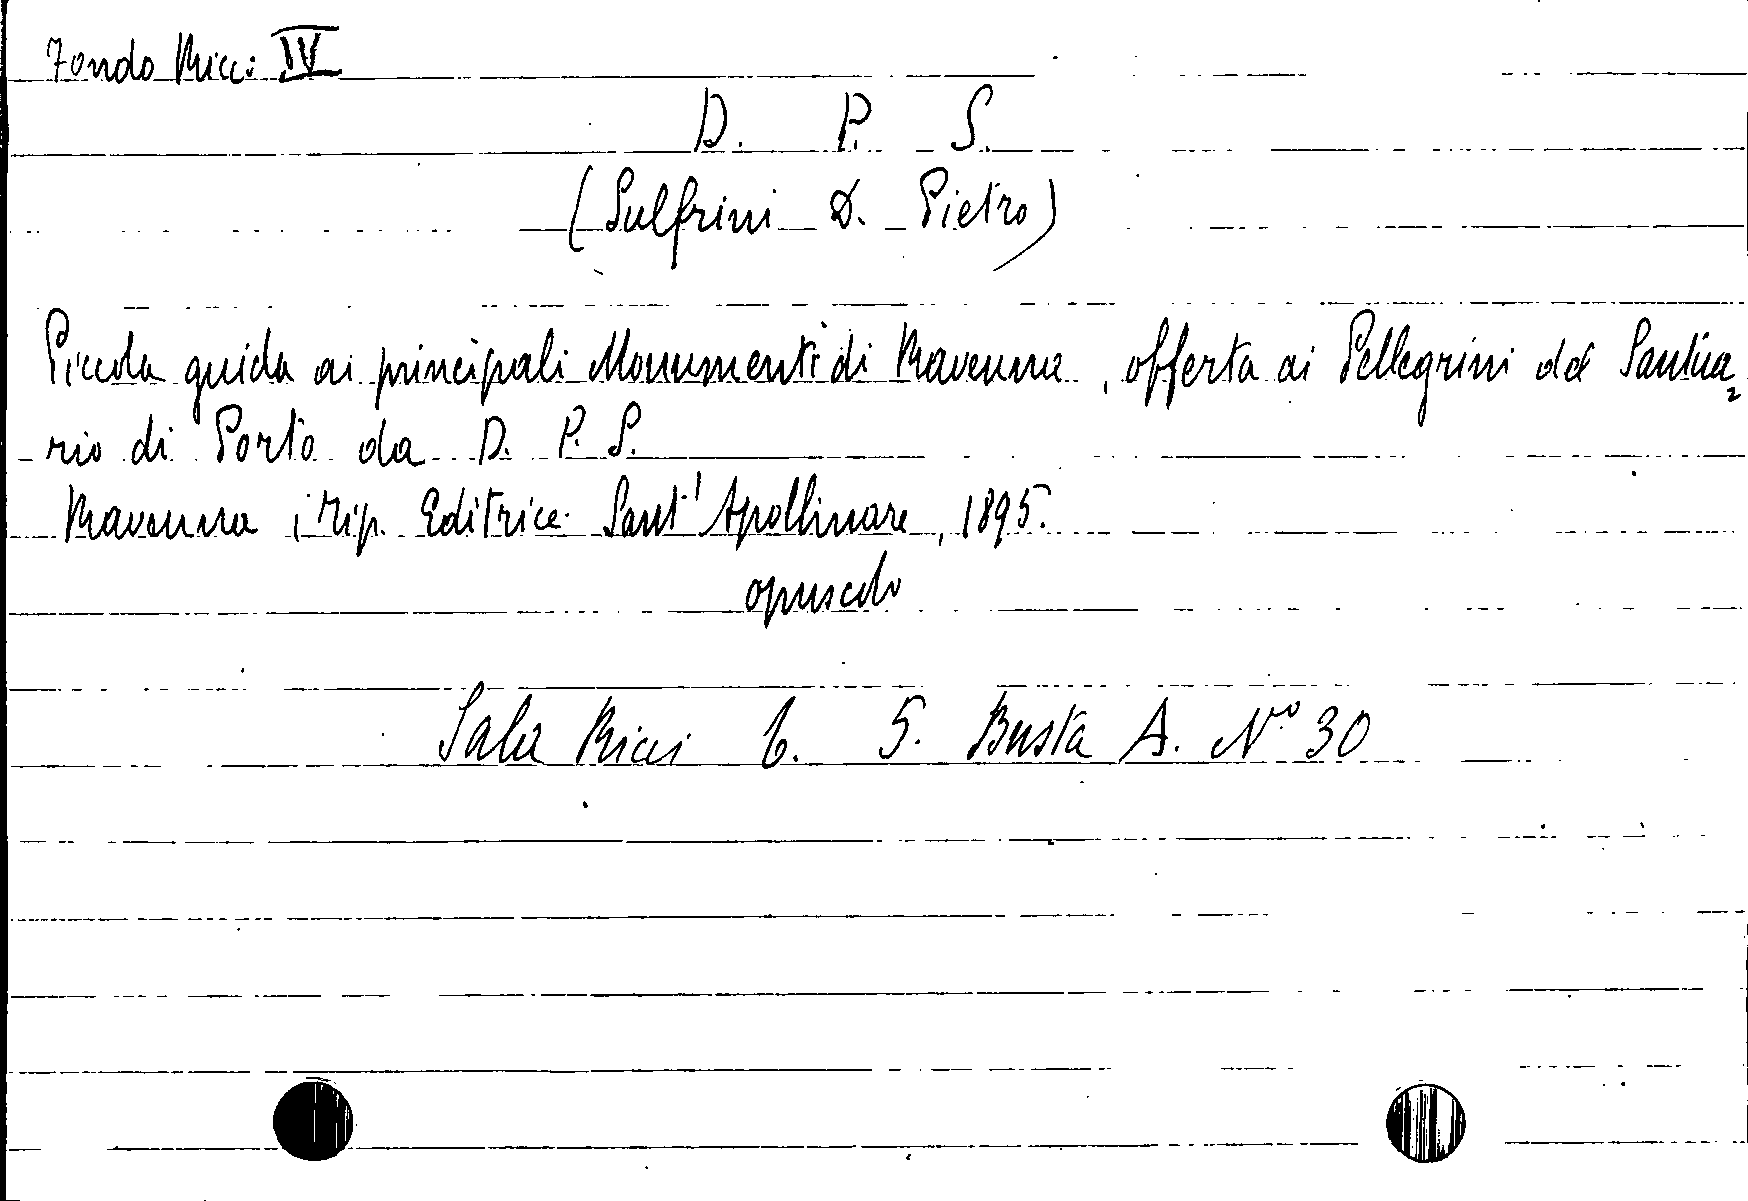 Fondo Ricci IV
D. P. S.
(Sulfrini D. Pietro)
Piccola guida ai principali Monumenti di Ravenna, offerta ai Pellegrini del Santua=
rio di Porto da D. P. S.
Ravenna, Tip. Editrice Sant'Apollinare, 1895.
opuscolo
Sala Ricci 6. 5. Busta A. N° 30